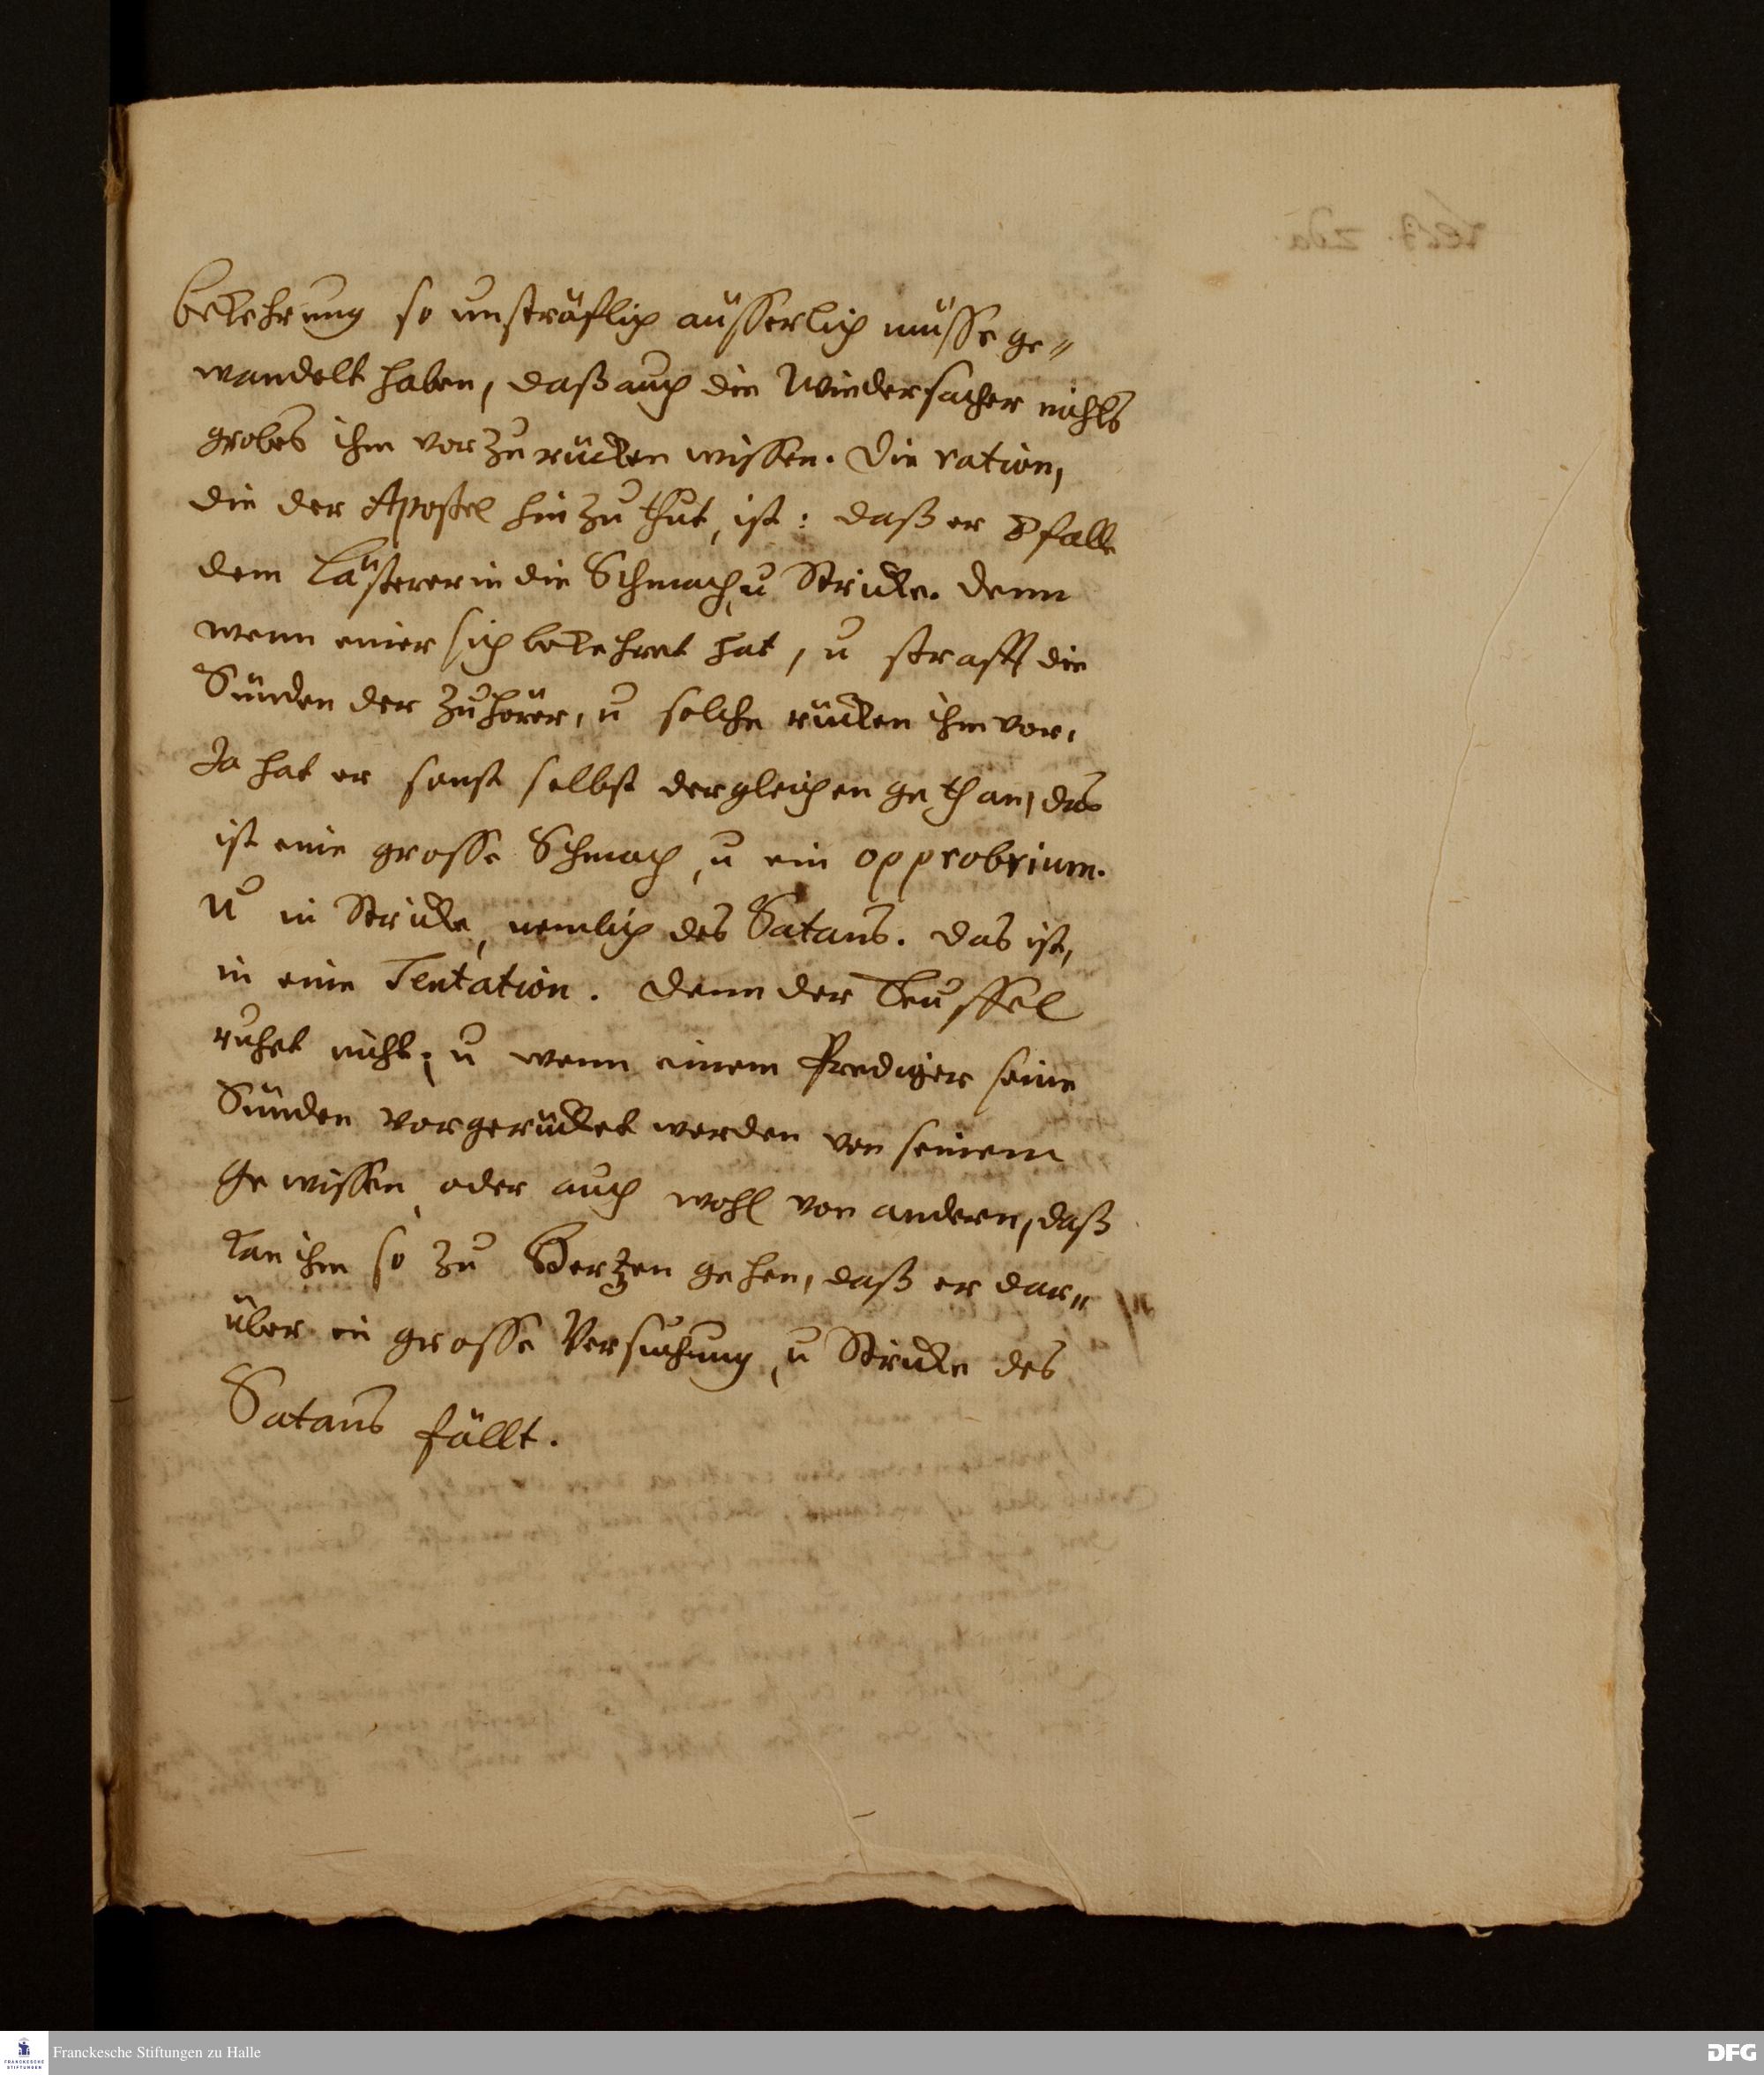 bekehrung so unsträflich äusserlich müsse ge=
wandelt haben, daß auch die Wiedersacher nichts
grobes ihm vorzurücken wissen. Die ration,
die der Apostel hinzuthut, ist: daß er falle
dem Lästerer in die Schmach, u Stricke. denn
wenn einer sich bekehret hat, u strafft die
Sünden der Zuhörer, u solche rücken ihm vor,
Ja hat er sonst selbst dergleichen gethan, das
ist eine grosse Schmach, u ein opprobrium.
U in Stricke, nemlich des Satans. das ist,
in eine Tentation. denn der Teuffel
ruhet nicht; u wenn einem Prediger seine
Sünden vorgerücket werden von seinem
Gewissen, oder auch wohl von andern, daß
kan ihm so zu Hertzen gehen, daß er dar=
über in grosse Versuchung, u Stricke des
Satans fällt.
Franckesche Stiftungen zu Halle
DFG
FRANCKESCHE
STIFTUNGEN